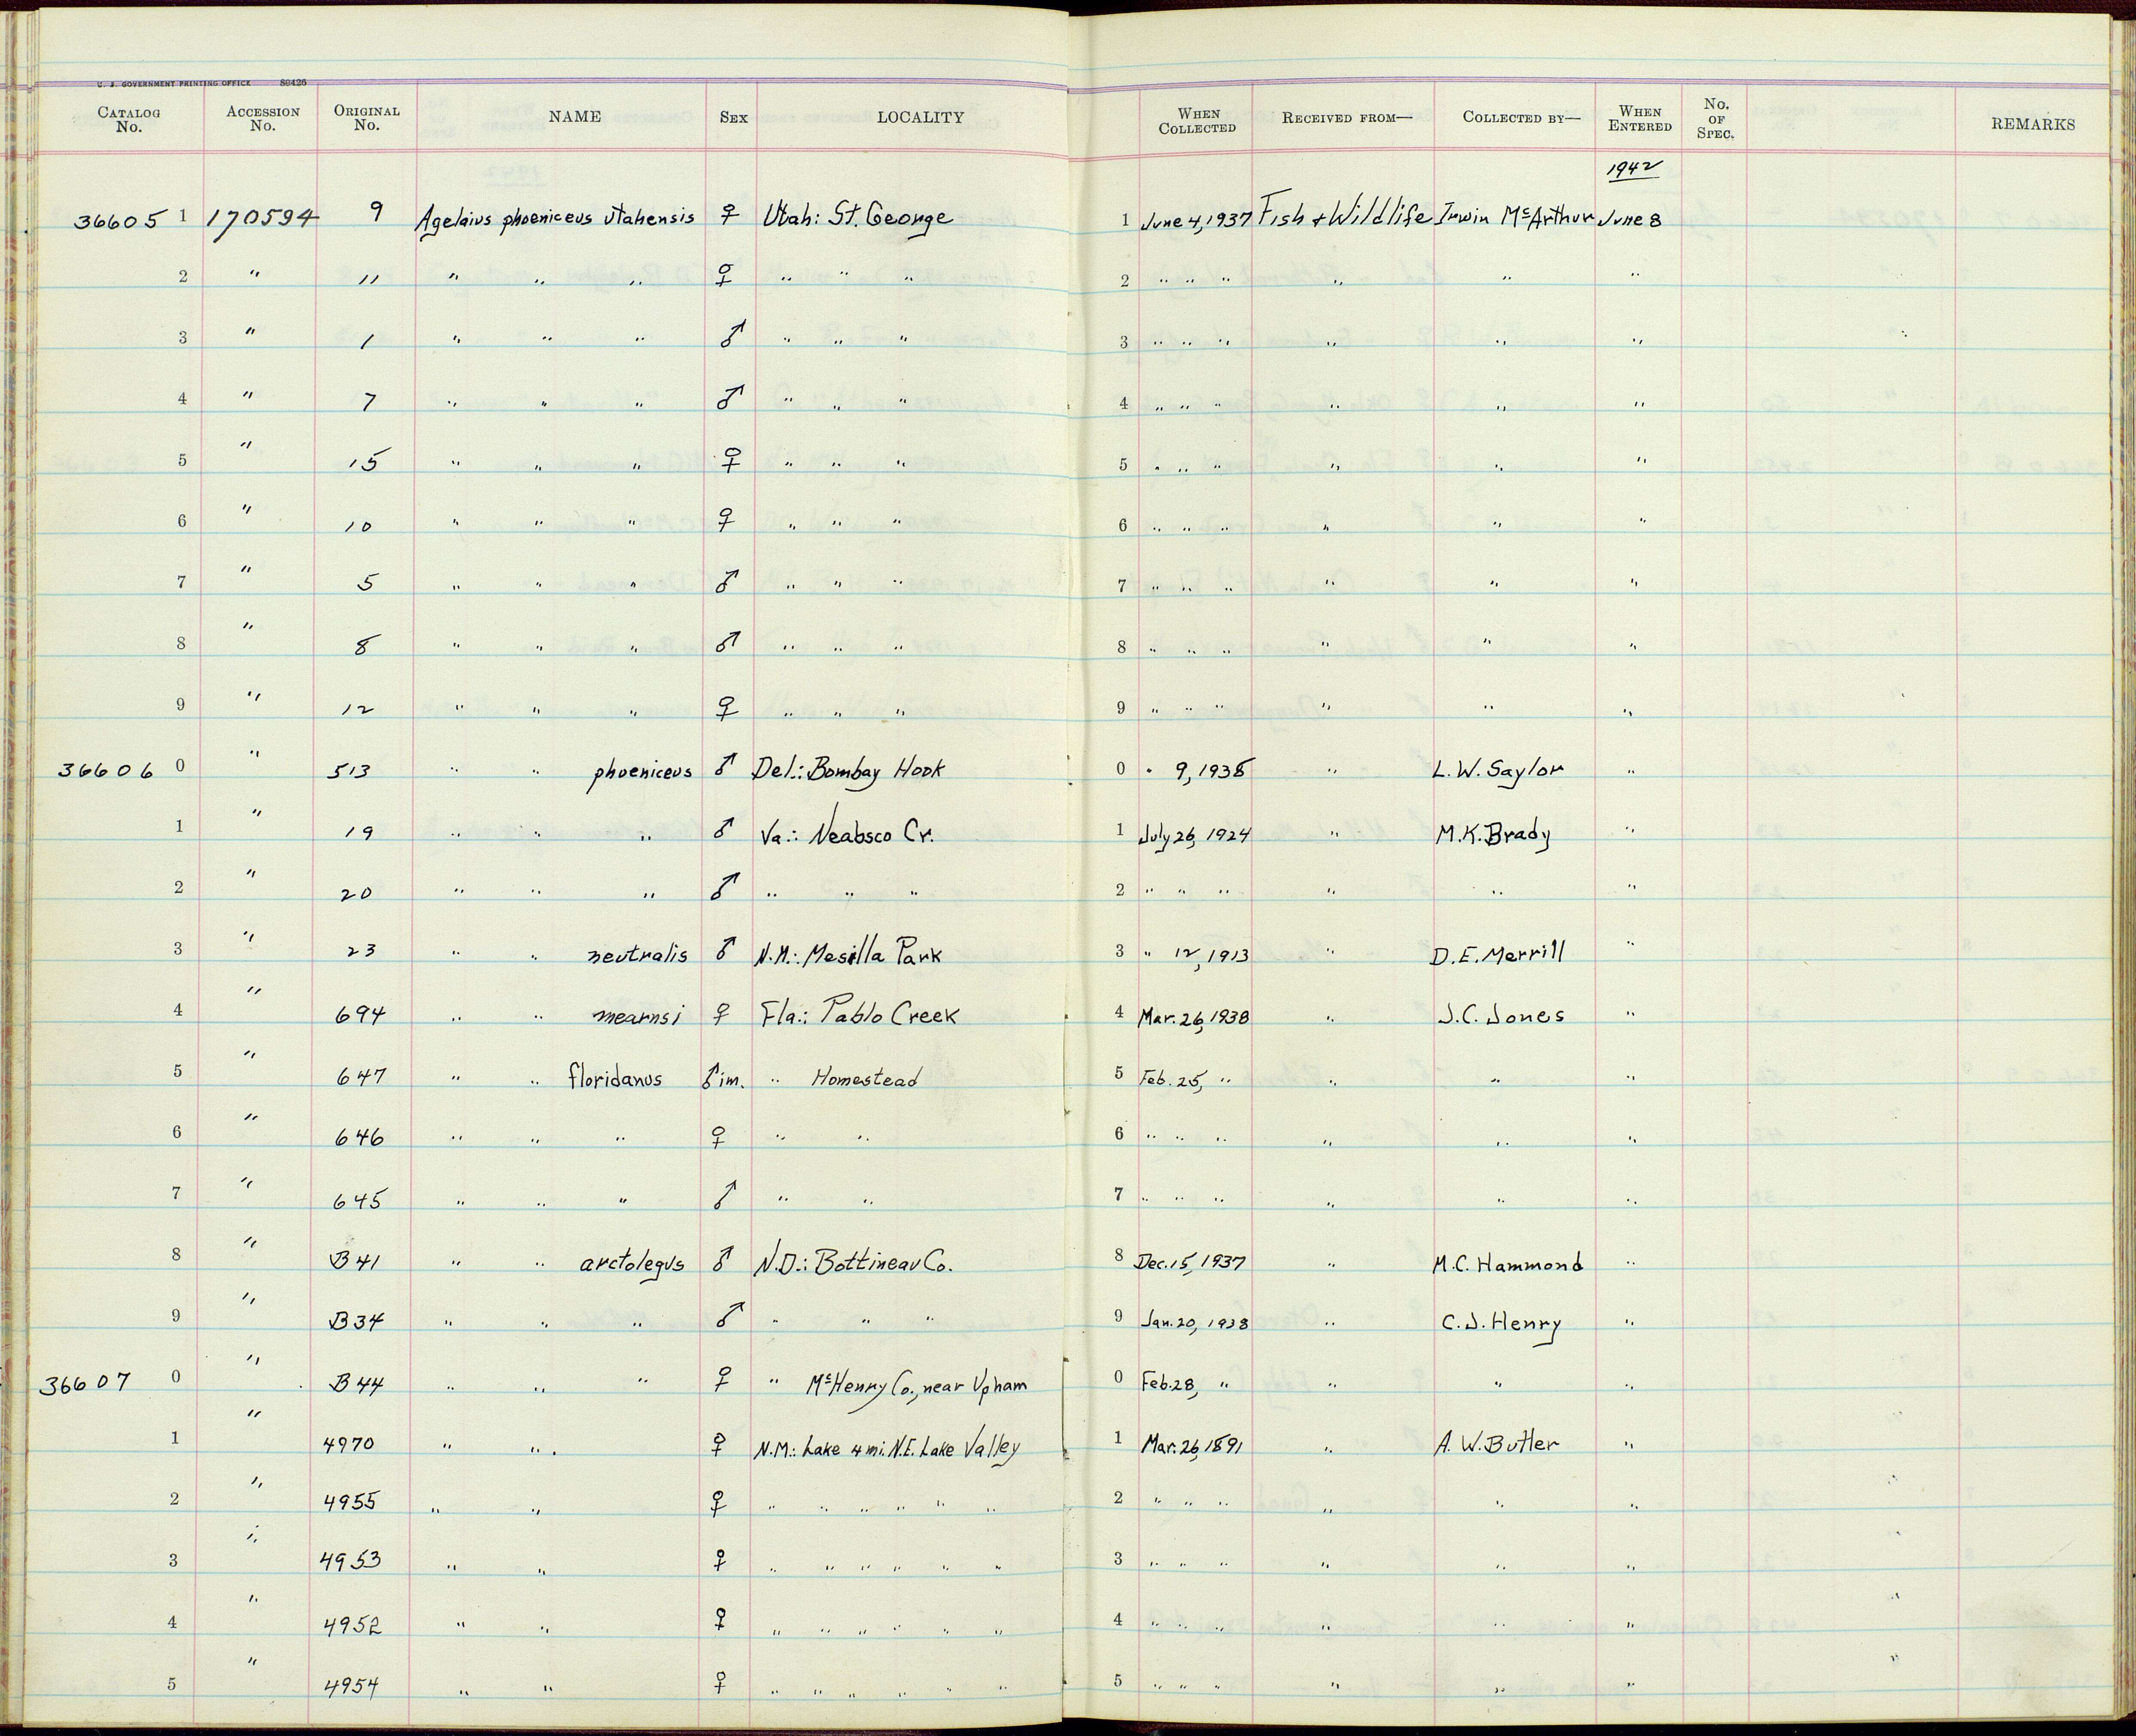 U. S. GOVERNMENT PRINTING OFFICE 89426
CATALOG No. ACCESSION No. ORIGINAL No. NAME SEX LOCALITY WHEN COLLECTED RECEIVED FROM— COLLECTED BY— WHEN ENTERED No. OF SPEC. REMARKS
1942
36605 1 170594 9 Agelaius phoeniceus utahensis ♀ Utah: St. George 1 June 4, 1937 Fish & Wildlife Irwin McArthur June 8
2 " 11 " " " ♀ " " " 2 " " " " " "
3 " 1 " " " ♂ " " " 3 " " " " " "
4 " 7 " " " ♂ " " " 4 " " " " " "
5 " 15 " " " ♀ " " " 5 " " " " " "
6 " 10 " " " ♀ " " " 6 " " " " " "
7 " 5 " " " ♂ " " " 7 " " " " " "
8 " 8 " " " ♂ " " " 8 " " " " " "
9 " 12 " " " ♀ " " " 9 " " " " " "
36606 0 " 513 " " phoeniceus ♂ Del.: Bombay Hook 0 " 9, 1938 " L. W. Saylor "
1 " 19 " " " ♂ Va.: Neabsco Cr. 1 July 26, 1924 " M. K. Brady "
2 " 20 " " " ♂ " " " 2 " " " " " "
3 " 23 " " neutralis ♂ N.M.: Mesilla Park 3 " 12, 1913 " D. E. Merrill "
4 " 694 " " mearnsi ♀ Fla.: Pablo Creek 4 Mar. 26, 1938 " J. C. Jones "
5 " 647 " " floridanus ♂ im. " Homestead 5 Feb. 25, " " " "
6 " 646 " " " ♀ " " 6 " " " " " "
7 " 645 " " " ♂ " " 7 " " " " " "
8 " B41 " " arctolegus ♂ N.D.: Bottineau Co. 8 Dec. 15, 1937 " M. C. Hammond "
9 " B34 " " " ♂ " " " 9 Jan. 20, 1938 " C. J. Henry "
36607 0 " B44 " " " ♀ " McHenry Co., near Upham 0 Feb. 28, " " " "
1 " 4970 " " ♀ N.M.: Lake 4 mi. N.E. Lake Valley 1 Mar. 26, 1891 " A. W. Butler "
2 " 4955 " " ♀ " " " " " " 2 " " " " " "
3 " 4953 " " ♀ " " " " " " 3 " " " " " "
4 " 4952 " " ♀ " " " " " " 4 " " " " " "
5 " 4954 " " ♀ " " " " " " 5 " " " " " "